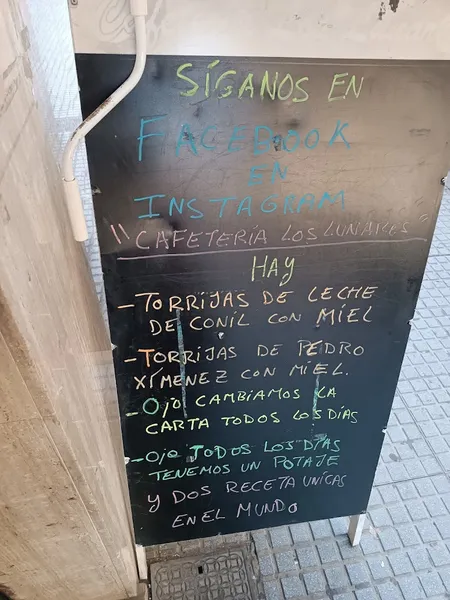 SÍGANOS EN
FACEBOOK
EN
INSTAGRAM
"CAFETERÍA LOS LUNARES"
HAY
-TORRIJAS DE LECHE
DE CONIL CON MIEL
-TORRIJAS DE PEDRO
XÍMENEZ CON MIEL.
-OJO CAMBIAMOS LA
CARTA TODOS LOS DÍAS
-OJO TODOS LOS DÍAS
TENEMOS UN POTAJE
Y DOS RECETA UNICAS
EN EL MUNDO